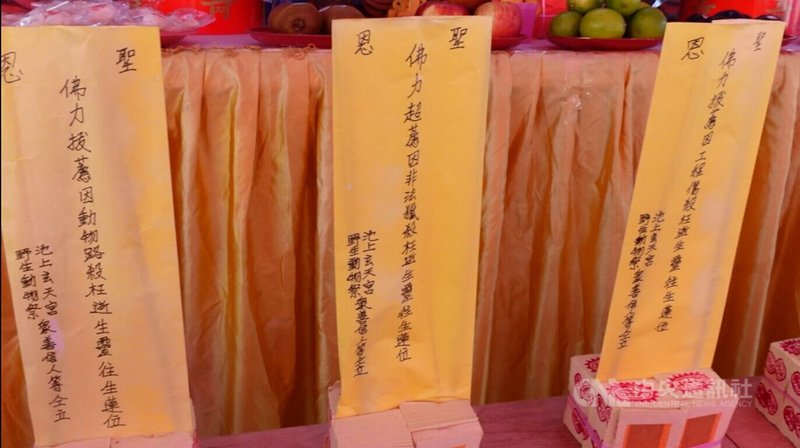 聖恩
佛力拔薦因動物路殺枉逝生靈往生蓮位
池上玄天宮 眾善信人等仝立
野生動物祭
聖恩
佛力超薦因非法獵殺枉逝生靈往生蓮位
池上玄天宮 眾善信人等仝立
野生動物祭
聖恩
佛力拔薦因工程傷殺枉逝生靈往生蓮位
池上玄天宮 眾善信人等仝立
野生動物祭
中央通訊社
THE CENTRAL NEWS AGENCY